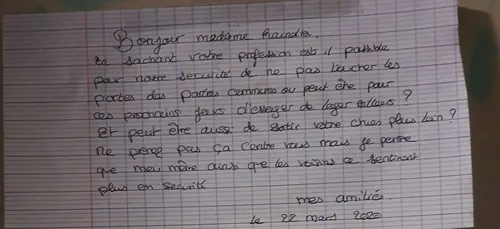 Bonjour madame
En sachant votre profession est il possible
par notre securité de ne pas toucher les
portes des parties communes ou peut être pour
ces prochains jours d'essayer de loger ailleurs ?
Et peut être aussi de sortir votre chien plus loin ?
Ne prenez pas ça contre vous mais je pense
que moi même ainsi que les voisins se sentiront
plus en sécurité
mes amitiés.
le 22 mars 2020